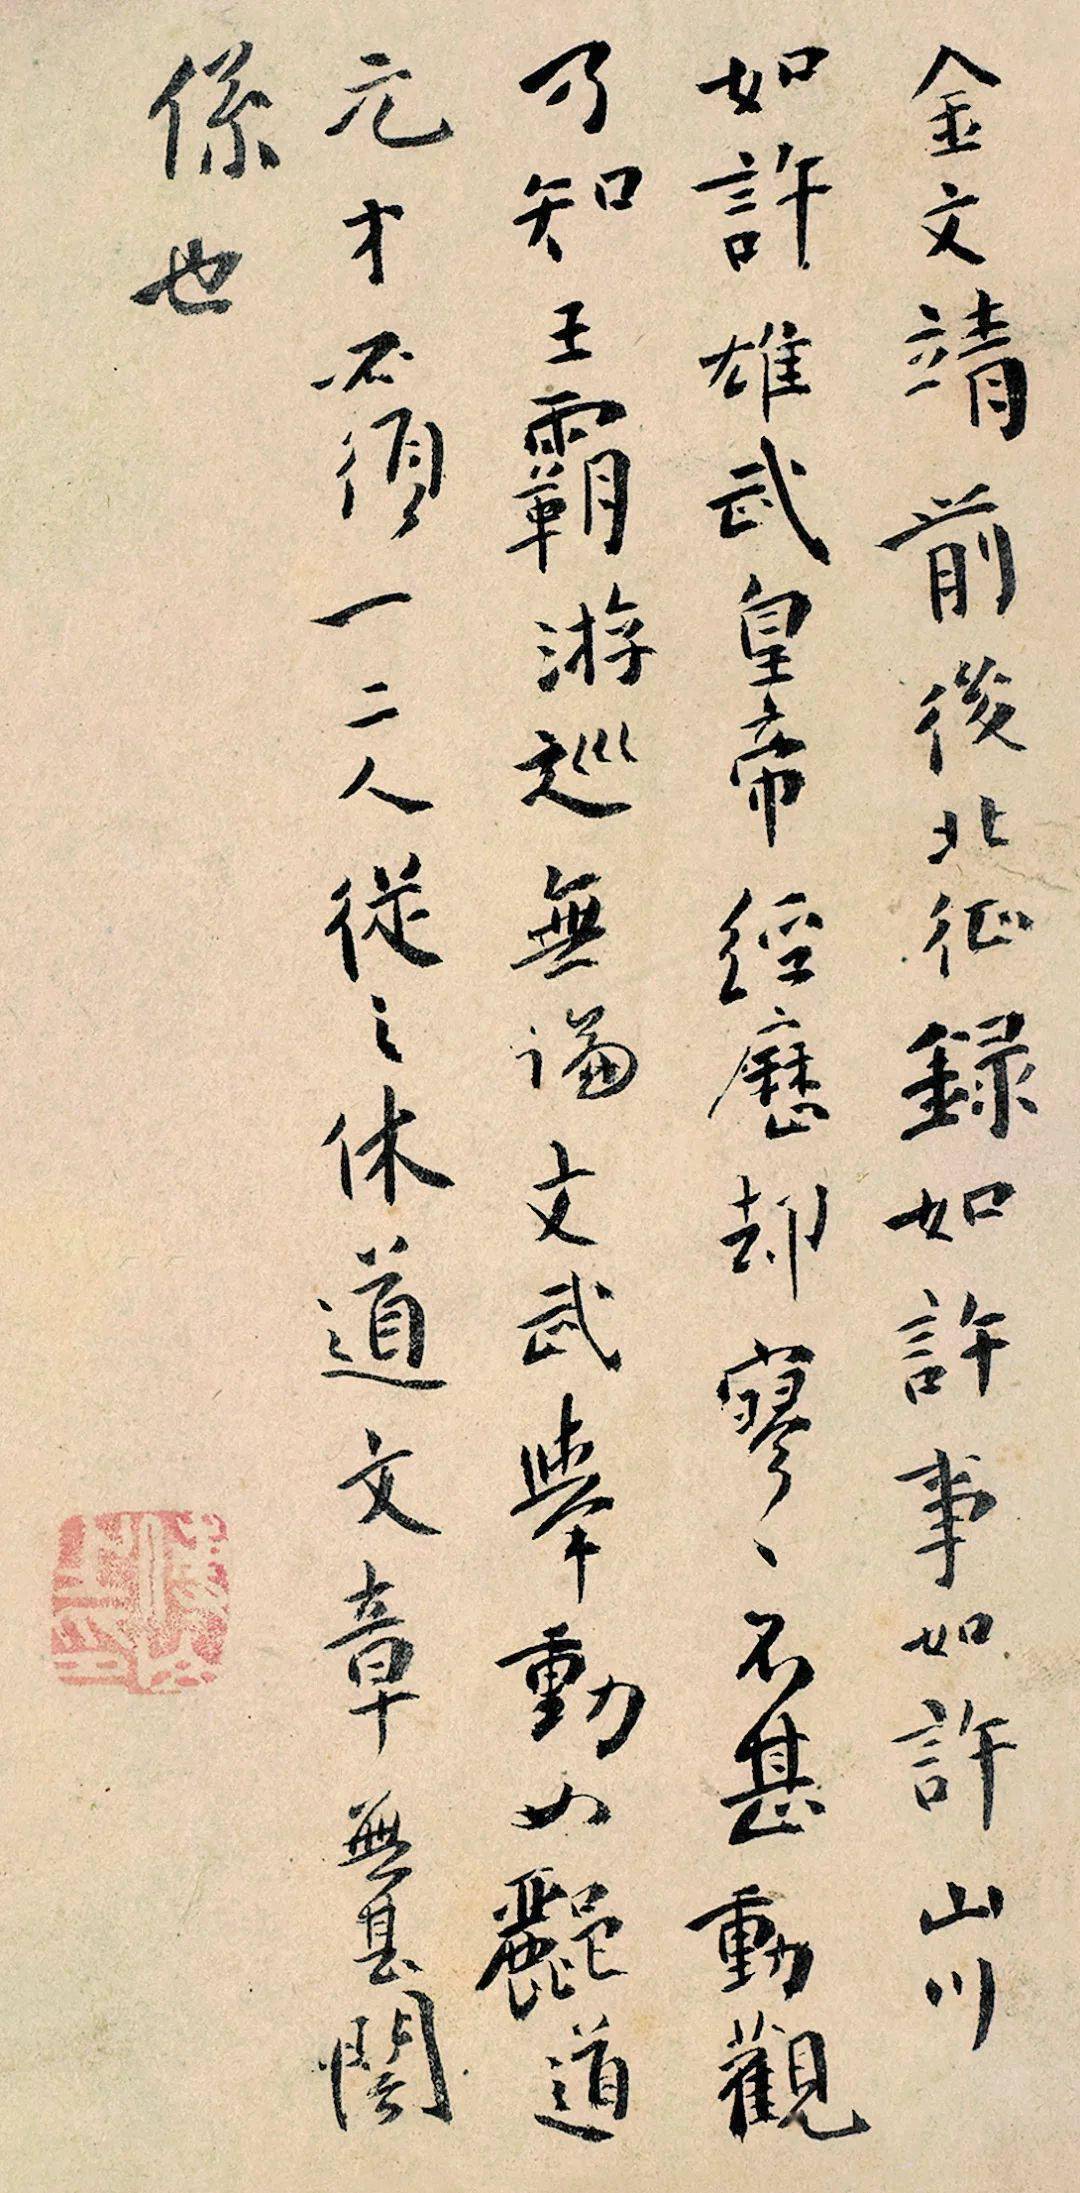 金文靖前後北征録如許事如許山川
如許雄武皇帝經歷却寥〻不甚動觀
乃知王霸游巡無論文武舉動酈道
元才須一二人從之休道文章無甚關
係也